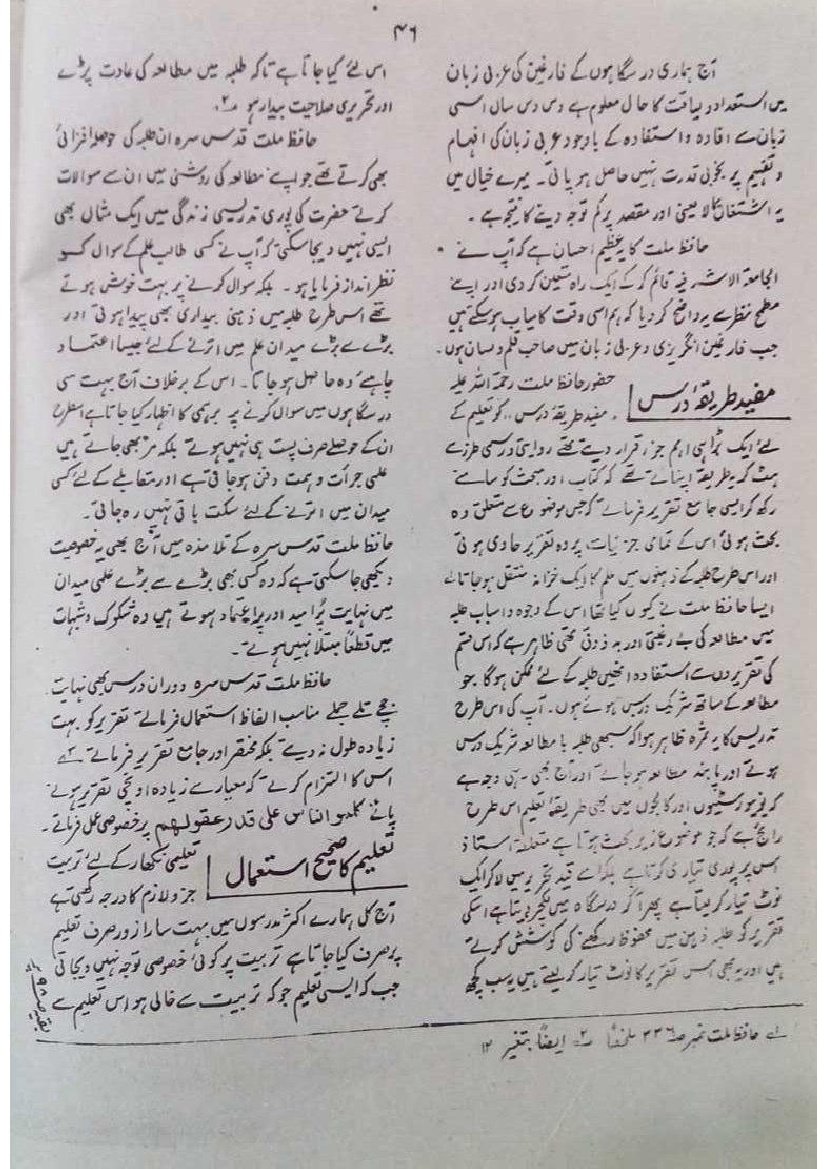 ۴۶
آج ہماری درسگاہوں کے فارغین کی عربی زبان
میں استعداد و لیاقت کا حال معلوم ہے دس دس سال اسی
زبان سے افادہ و استفادہ کے باوجود عربی زبان کی افہام
و تفہیم پر بخوبی قدرت نہیں حاصل ہو پاتی۔ میرے خیال میں
یہ اشتغال بالا یعنی اور مقصد پر کم توجہ دینے کا نتیجہ ہے۔
حافظ ملت کا یہ عظیم احسان ہے کہ آپ نے
الجامعۃ الاشرفیہ قائم کر کے ایک راہ متعین کر دی اور اپنے
مطمح نظر سے یہ واضح کر دیا کہ ہم اسی وقت کامیاب ہو سکتے ہیں
جب فارغین انگریزی و عربی زبان میں صاحب قلم و لسان ہوں۔
مفید طریقۂ درس
حضور حافظ ملت رحمۃ اللہ علیہ
، مفید طریقہ درس ،، کو تعلیم کے
لئے ایک بڑا ہی اہم جزء قرار دیتے تھے روایتی و رسمی طرز سے
ہٹ کر یہ طریقہ اپنائے تھے کہ کتاب اور مبحث کو سامنے
رکھ کر ایسی جامع تقریر فرماتے کہ جس موضوع سے متعلق وہ
بحث ہوتی اس کے تمامی جزئیات پر وہ تقریر حاوی ہوتی
اور اس طرح طلبہ کے ذہنوں میں علم کا ایک خزانہ منتقل ہو جاتا ہے
ایسا حافظ ملت نے کیوں کیا تھا اس کے وجوہ و اسباب طلبہ
میں مطالعہ کی بے رغبتی اور بد ذوقی تھی ظاہر ہے کہ اس قسم
کی تقریروں سے استفادہ انھیں طلبہ کے لئے ممکن ہوگا جو
مطالعہ کے ساتھ شریک درس ہوتے ہوں۔ آپ کی اس طرح
تدریس کا یہ ثمرہ ظاہر ہوا کہ سبھی طلبہ با مطالعہ شریک درس
ہوتے اور پابند مطالعہ ہو جاتے اور آج بھی یہی وجہ ہے
کہ یونیورسٹیوں اور کالجوں میں بھی طریقۂ تعلیم اس طرح
رائج ہے کہ جو موضوع زیر بحث ہوتا ہے متعلقہ استاذ
اس پر پوری تیاری کرتا ہے بلکہ اسے قید تحریر میں لا کر ایک
نوٹ تیار کر لیتا ہے پھر آ کر درسگاہ میں لکچر دیتا ہے اس کی
تقریر کو طلبہ ذہن میں محفوظ رکھنے کی کوشش کرتے
ہیں اور یہ بھی اس تقریر کا نوٹ تیار کر لیتے ہیں یہ سب کچھ
اس لئے کیا جاتا ہے تاکہ طلبہ میں مطالعہ کی عادت پڑے
اور تحریری صلاحیت بیدار ہو ؂۲
حافظ ملت قدس سرہ ان طلبہ کی حوصلہ افزائی
بھی کرتے تھے جو اپنے مطالعہ کی روشنی میں ان سے سوالات
کرتے حضرت کی پوری تدریسی زندگی میں ایک مثال بھی
ایسی نہیں دیجا سکتی کہ آپ نے کسی طالب علم کے سوال کو
نظر انداز فرمایا ہو۔ بلکہ سوال کرنے پر بہت خوش ہوتے
تھے اس طرح طلبہ میں ذہنی بیداری بھی پیدا ہوتی اور
بڑے سے بڑے میدان علم میں اترنے کے لئے جیسا اعتماد
چاہیے وہ حاصل ہو جاتا۔ اس کے برخلاف آج بہت سی
درسگاہوں میں سوال کرنے پر برہمی کا اظہار کیا جاتا ہے اسطرح
ان کے حوصلے صرف پست ہی نہیں ہوتے بلکہ مر بھی جاتے ہیں
علمی جرأت و ہمت دفن ہو جاتی ہے اور مقابلے کے لئے کسی
میدان میں اترنے کے لئے سکت باقی نہیں رہ جاتی۔
حافظ ملت قدس سرہ کے تلامذہ میں آج بھی یہ خصوصیت
دیکھی جا سکتی ہے کہ وہ کسی بھی بڑے سے بڑے علمی میدان
میں نہایت پر امید اور پر اعتماد ہوتے ہیں وہ شکوک و شبہات
میں قطعاً مبتلا نہیں ہوتے۔
حافظ ملت قدس سرہ دوران درس بھی نہایت
جچے تلے جملے مناسب الفاظ استعمال فرماتے تقریر کو بہت
زیادہ طول نہ دیتے بلکہ مختصر اور جامع تقریر فرماتے تھے
اس کا التزام کرتے کہ معیار سے زیادہ اونچی تقریر نہ ہونے
پائے کلموا الناس علی قدر عقولھم پر خصوصی عمل فرماتے۔
تعلیم کا صحیح استعمال
تعلیمی نکھار کے لئے تربیت
جزو لازم کا درجہ رکھتی ہے
آج کل ہمارے اکثر مدرسوں میں بہت سارا زور صرف تعلیم
پر صرف کیا جاتا ہے تربیت پر کوئی خصوصی توجہ نہیں دیجاتی
جب کہ ایسی تعلیم جو کہ تربیت سے خالی ہو اس تعلیم سے
؂۱ حافظ ملت نمبر ص ۳۳۶ ملخصاً ؂۲ ایضاً بتغیر ۱۲